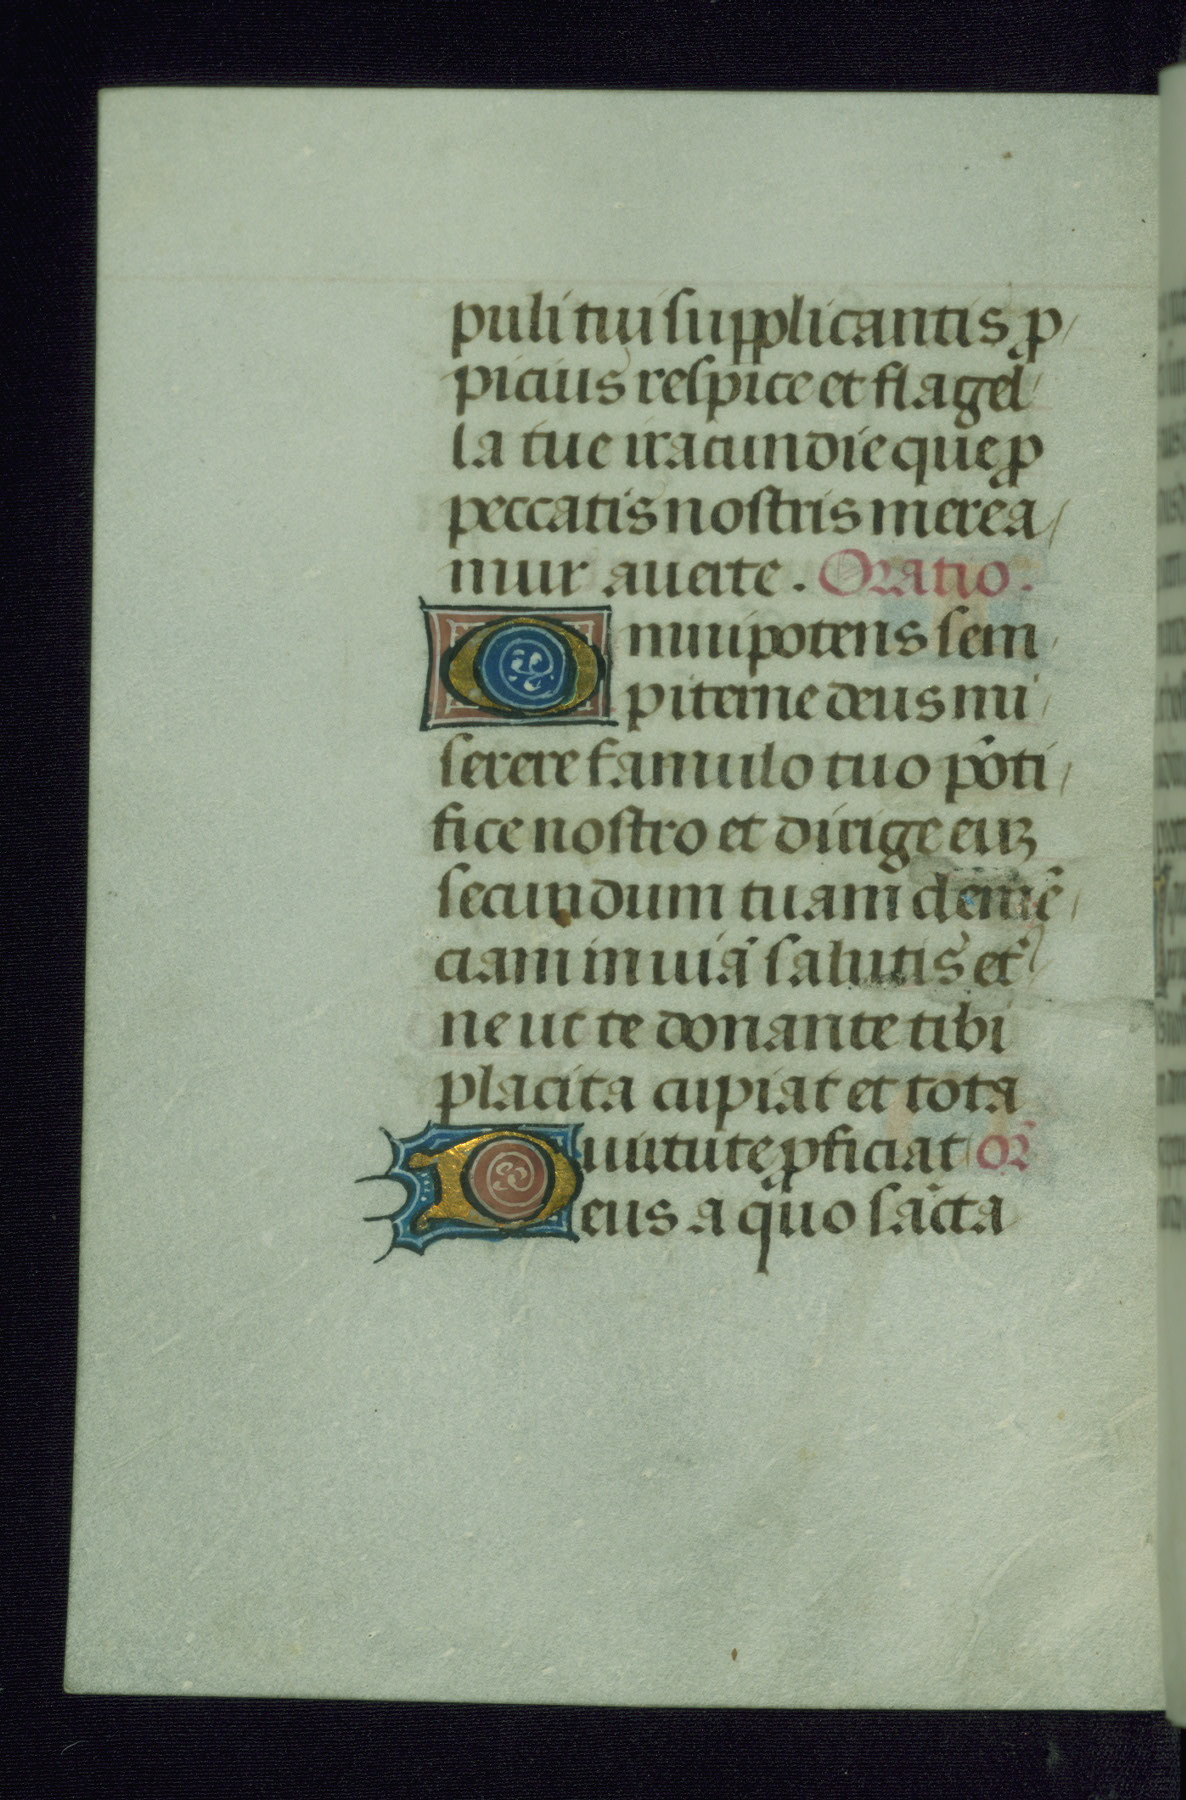 puli tui supplicantis ꝓ
picius respice et flagel
la tue iracundie que ꝓ
peccatis nostris merea
mur auerte. Oratio.
Omnipotens sem
piterne deus mi
serere famulo tuo põti
fice nostro et dirige euꝫ
secundum tuam clemẽ
ciam in uiã salutis et̾
ne ut te donante tibi
placita cupiat et tota
uirtute ꝑficiat Or̃
Deus a quo sãcta